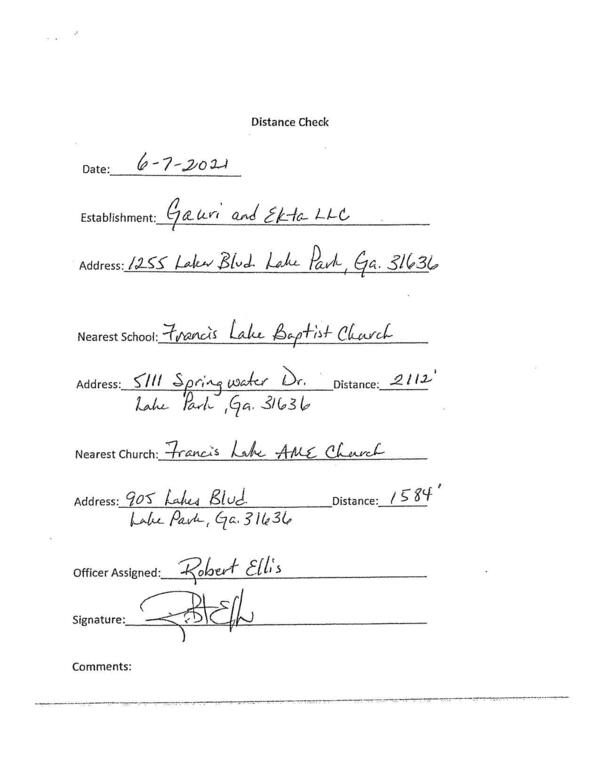 Distance Check
Date: 6-7-2021
Establishment: Gauri and Ekta LLC
Address: 1255 Lakes Blvd. Lake Park, Ga. 31636
Nearest School: Francis Lake Baptist Church
Address: 5111 Springwater Dr. Distance: 2112'
Lake Park, Ga. 31636
Nearest Church: Francis Lake AME Church
Address: 905 Lakes Blvd Distance: 1584'
Lake Park, Ga. 31636
Officer Assigned: Robert Ellis
Signature:
Comments: